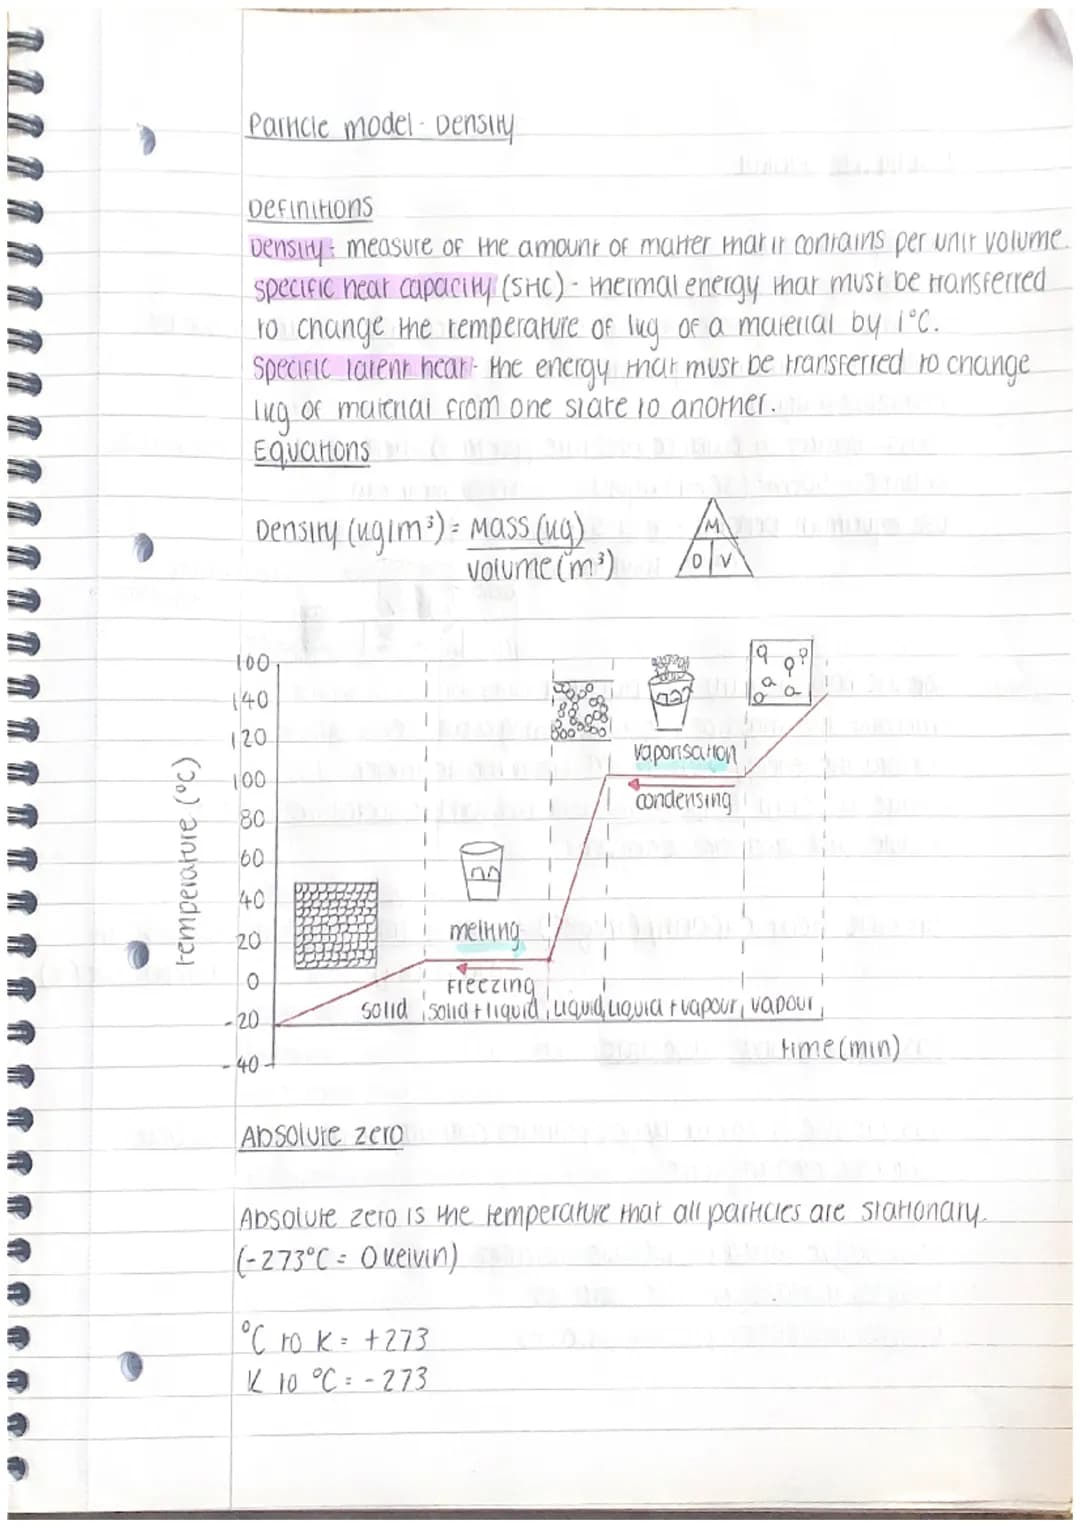 Particle model - Density
Definitions
Density: measure of the amount of matter that it contains per unit volume.
specific heat capacity (SHC) - thermal energy that must be transferred
to change the temperature of 1kg of a material by 1°C.
Specific latent heat - the energy that must be transferred to change
1kg of material from one state to another.
Equations
Density (kg/m³) = Mass (kg)
volume (m³)
M
D V
160
140
120
100
80
60
40
20
0
-20
-40
temperature (°C)
vaporisation
condensing
melting
Freezing
solid solid + liquid liquid liquid + vapour vapour
time (min)
Absolute zero
Absolute zero is the temperature that all particles are stationary.
(-273°C = 0 kelvin)
°C to K = +273
K to °C = -273